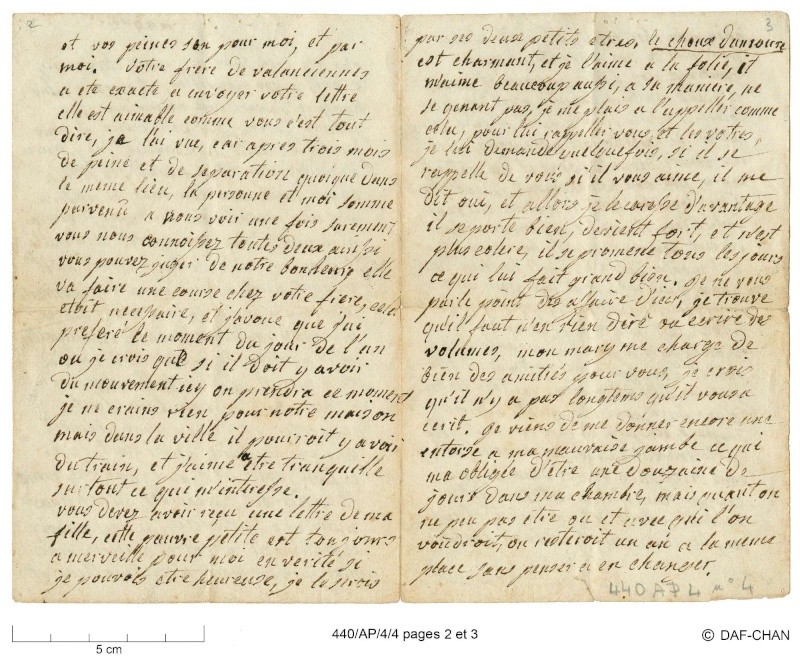 2
et vos peines son pour moi, et par
moi. Votre frere de valanciennes
a eté exacte a envoyer votre lettre
elle est aimable comme vous c'est tout
dire, je l'ai vue, car apres trois mois
de peine et de separation quoique dans
le meme lieu, la personne et moi somme
parvenu a nous voir une fois surement
vous nous connoissez toutes deux ainsi
vous pouvez juger de notre bonheur elle
va faire une course chez votre frere, cela
etoit necessaire, et j'avoue que j'ai
preferé le moment du jour de l'an
ou je crois que si il doit y avoir
du mouvement icy on prendra ce moment
je ne crains rien pour notre maison
mais dans la ville il pourroit y avoir
du train, et j'aime a etre tranquille
sur tout ce qui m'interesse.
vous devez avoir reçu une lettre de ma
fille, cette pauvre petite est toujours
a merveille pour moi en verité si
je pouvois etre heureuse, je le serois
3
par ses deux petits etres. le choux d'amour
est charmant, et je l'aime a la folie, il
m'aime beaucoup aussi, a sa maniere, ne
se genant pas, je me plais a l'appeller comme
cela, pour lui rappeller vous, et les votres,
je lui demande quelquefois, si il se
rappelle de vous si il vous aime, il me
dit oui, et allors je le caresse d'avantage
il se porte bien, devient fort, et n'est
plus colere, il se promene tous les jours
ce qui lui fait grand bien. je ne vous
parle point des affaire d'icy, je trouve
qu'il faut n'en rien dire ou ecrire des
volumes, mon mary me charge de
bien des amitiés pour vous, je crois
qu'il n'y a pas longtems qu'il vous a
ecrit. je viens de me donner encore une
entorse a ma mauvaise jambe ce qui
ma obligée d'être une douzaine de
jours dans ma chambre, mais quant on
ne peu pas etre ou et avec qui l'on
voudroit, on resteroit un an a la meme
place sans penser a en changer.
440 AP 4 n° 4
5 cm
440/AP/4/4 pages 2 et 3
© DAF-CHAN